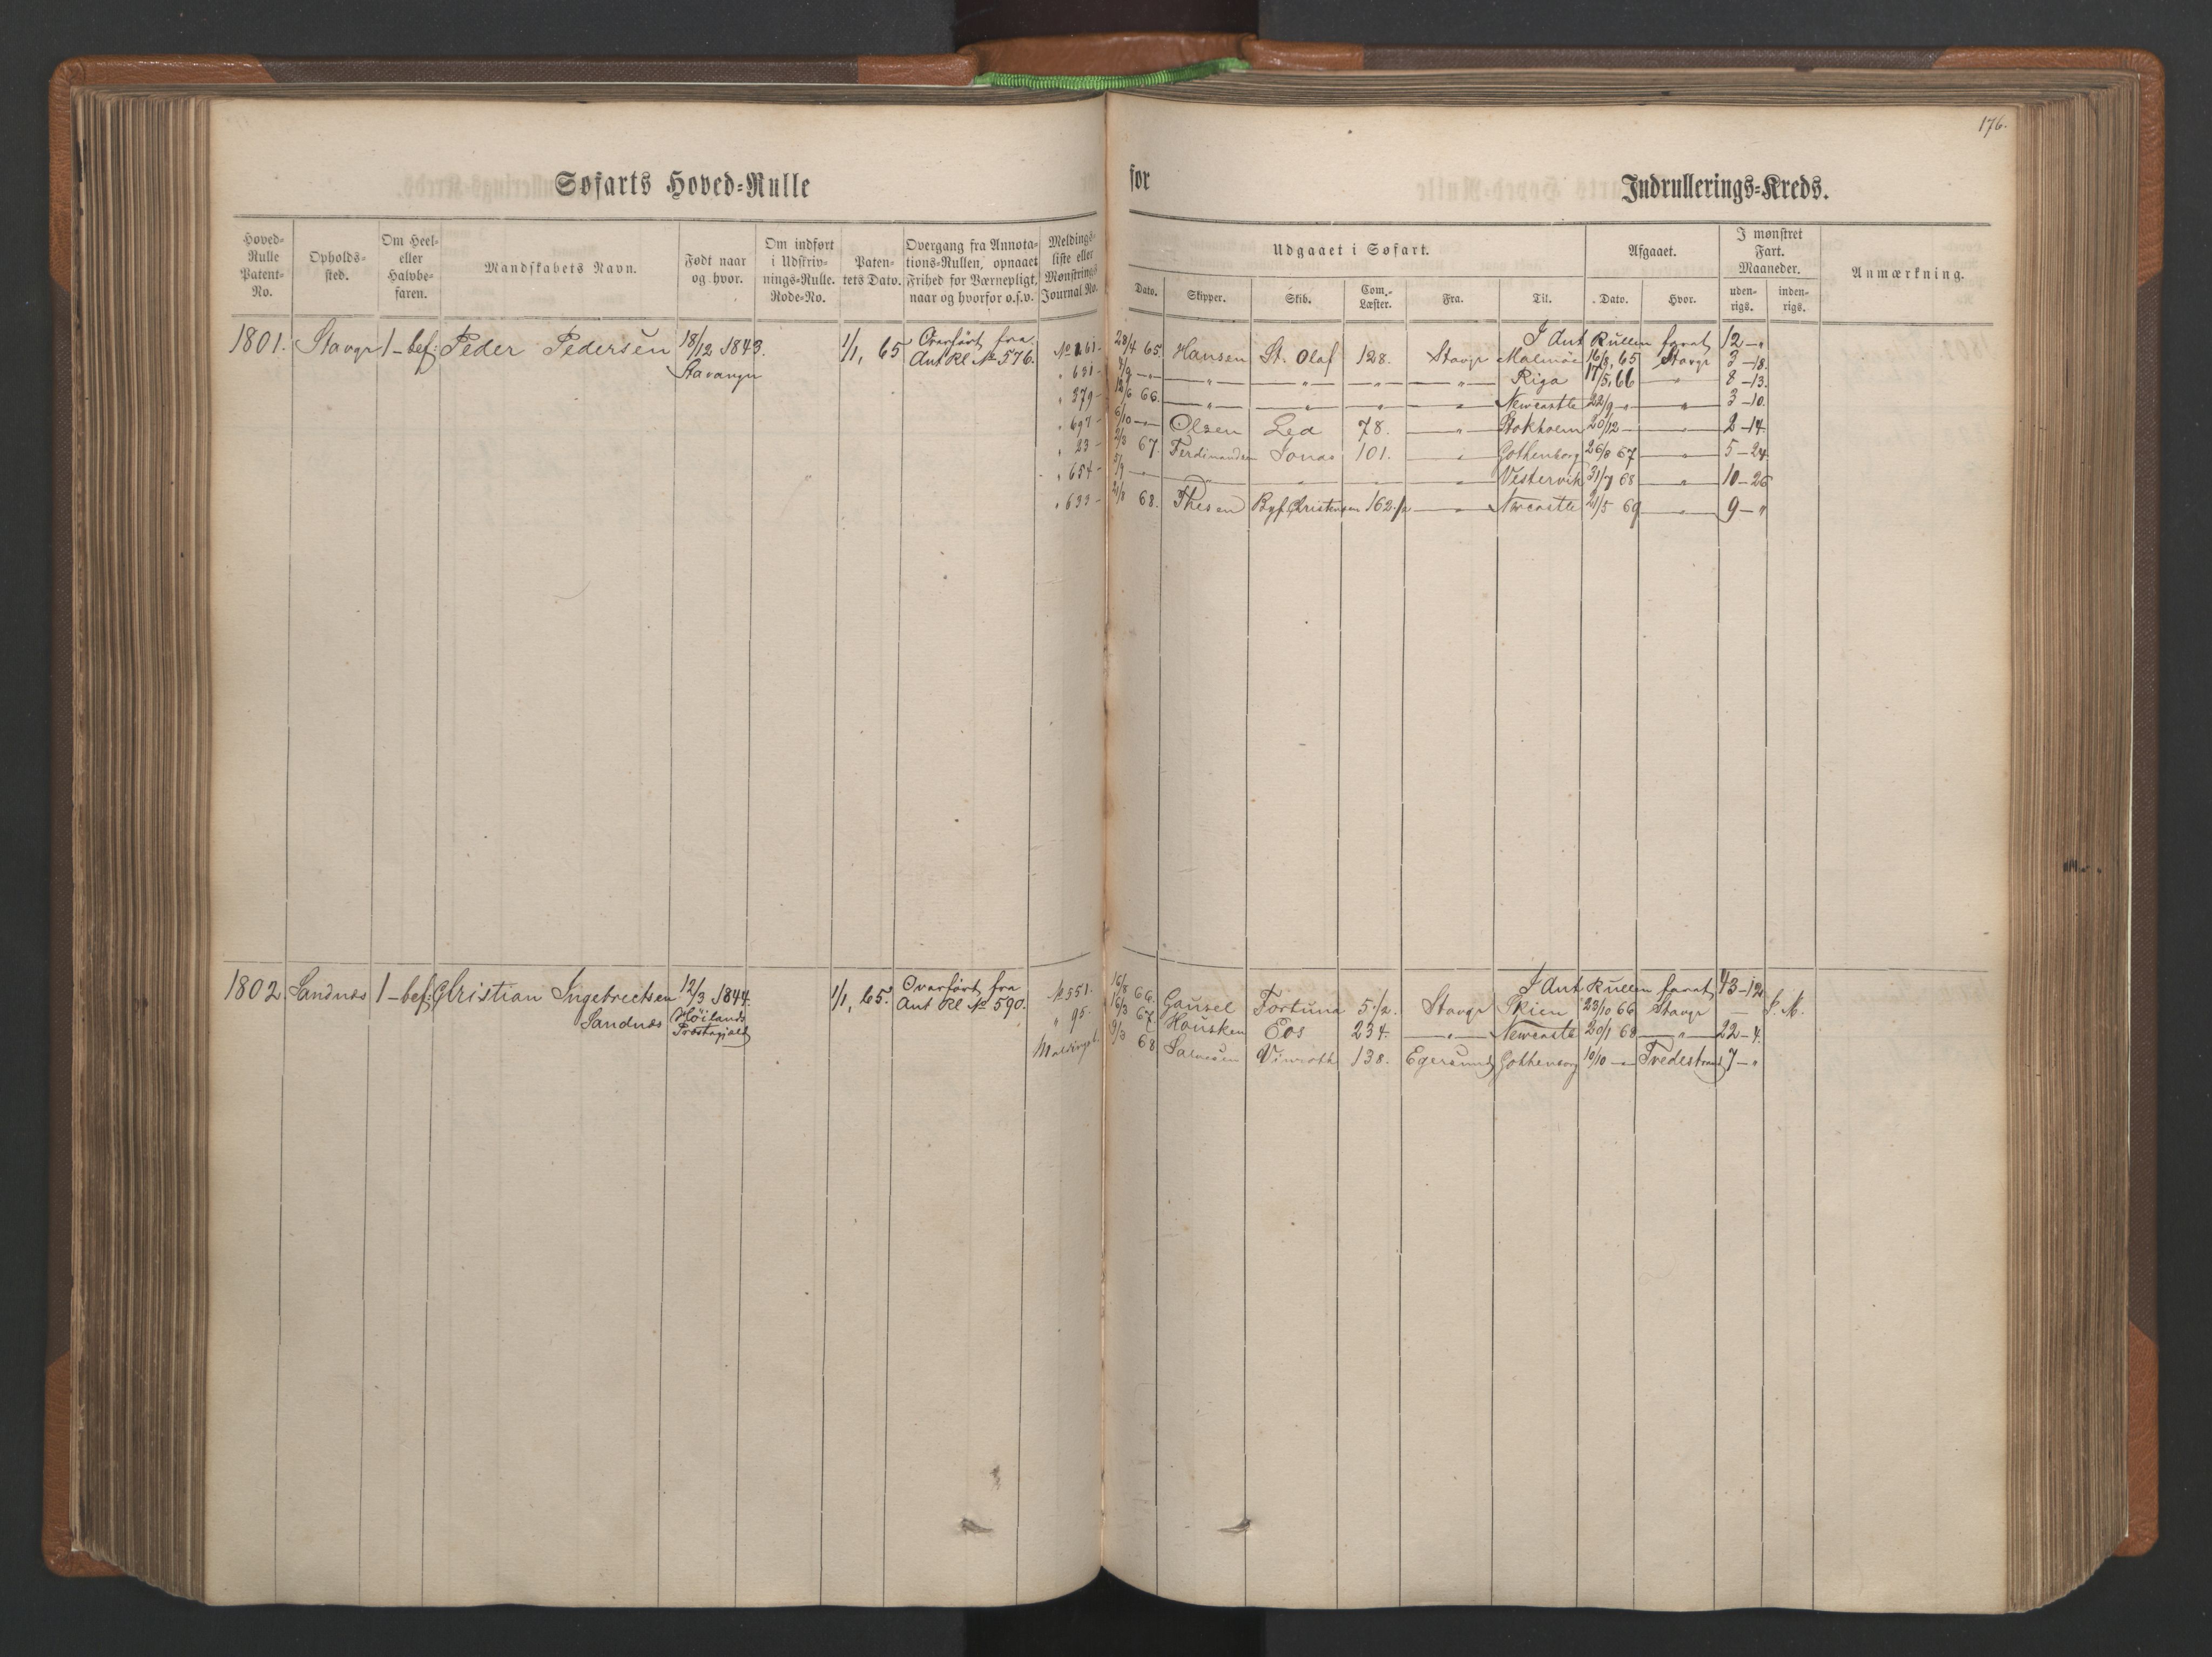 176.
Søfarts Hoved-Rulle for Indrullerings-Kreds.
Hoved-Rulle Patent-No. Opholds-sted. Om Heel- eller Halvbe-faren. Mandskabets Navn. Født naar og hvor. Om indført i Udskriv-nings-Rulle. Rode-No. Paten-tets Dato. Overgang fra Annota-tions-Rullen, opnaaet Frihed for Værnepligt, naar og hvorfor o.s.v. Meldings-liste eller Mønstrings Journal No.
Udgaaet i Søfart. Afgaaet. I mønstret Fart. Maaneder. Anmærkning.
Dato. Skipper. Skib. Com.-Læster. Fra. Til. Dato. Hvor. uden-rigs. inden-rigs.
I Ant Rullen farat 12 - "
1801. Stavgr 1-bef: Peder Pedersen 18/12 1843. Stavanger 1/1, 65 Overført fra Ant Rl No 576.
No 161 - 28/4 65. Hansen St. Olaf 128. Stavgr Malmöe 16/8, 65 Stavgr 3-18.
" 631 - 4/9 - " - " - " - " - " Riga 17/5, 66 " 8-13.
" 279 - 12/6 66. " " " " Newcastle 22/9 - " " 3-10.
" 697 - 6/10 - " Olsen Led 78. " Stokholm 20/12 - " 2-14
" 23 - 2/3 67. Ferdinandsen Jonas 101. " Gothenborg 26/8 67 " 5-24
" 654 - 5/9 - " " " " Vestervik 31/7 68 " 10-26
" 633 - 21/8 68. Thesen Bgf. Christensen 162 1/2 " Newcastle 21/5 69 " 9 - "
I Ant. Rullen farat 43-12
1802. Sandnes 1-bef: Christian Ingebretsen Sandnes 12/3 1844. Høilands Præstegjæld 1/1, 65. Overført fra Ant Rl No 590.
No 551. 16/8 66. Gausel Fortuna 5 1/2. Stavgr Skien 23/10 66 Stavgr -
" 95. 16/3 67. Hausken Eos 234. " Newcastle 20/1 68 " 22-4.
9/3 68 Salvesen 138. Egersund Gothenborg 10/10 - " Tvedestrand 7 - "